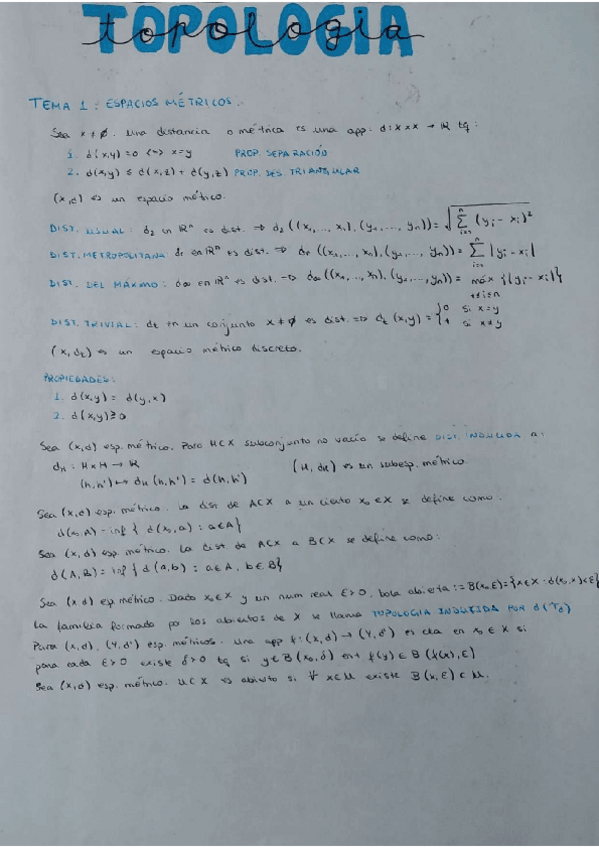 TOPOLOGIA
topologia
TEMA 1: ESPACIOS MÉTRICOS.
Sea X ≠ ∅. Una distancia o métrica es una app. d: X x X → ℝ tq:
1. d(x,y) = 0 <=> x=y PROP. SEPARACIÓ
2. d(x,y) ≤ d(x,z) + d(y,z) PROP. DES. TRIANGULAR
(X,d) es un espacio métrico.
DIST. USUAL: d₂ en ℝⁿ es dist. => d₂ ((x₁,..., xₙ), (y₁,..., yₙ)) = √(∑ᵢ₌₁ⁿ (yᵢ - xᵢ)²)
DIST. METROPOLITANA d₁ en ℝⁿ es dist. => d₁ ((x₁,..., xₙ), (y₁,..., yₙ)) = ∑ᵢ₌₁ⁿ |yᵢ - xᵢ|
DIST. DEL MÁXIMO: d∞ en ℝⁿ es dist. => d∞ ((x₁,..., xₙ), (y₁,..., yₙ)) = máx {|yᵢ - xᵢ|}
1≤i≤n
DIST. TRIVIAL: dₜ en un conjunto X ≠ ∅ es dist. => dₜ (x,y) = { 0 si x=y
1 si x≠y
(X, dₜ) es un espacio métrico discreto.
PROPIEDADES:
1. d(x,y) = d(y,x)
2. d(x,y) ≥ 0
Sea (X,d) esp. métrico. Para H⊂X subconjunto no vacío se define DIST. INDUCIDA a:
d_H : H x H → ℝ (H, d_H) es un subesp. métrico
(h,h') ↦ d_H (h,h') = d(h,h')
Sea (X,d) esp. métrico. La dist de A⊂X a un cierto x₀ ∈ X se define como:
d(x₀,A) = inf { d(x₀,a) : a∈A}
Sea (X,d) esp. métrico. La dist. de A⊂X a B⊂X se define como:
d(A,B) = inf { d(a,b) : a∈A, b∈B}
Sea (X,d) esp métrico. Dado x₀∈X y un num real ε>0, bola abierta := B(x₀,ε) = {x∈X : d(x₀,x)<ε}
La familia formada por los abiertos de X se llama TOPOLOGIA INDUCIDA POR d (τ_d)
Para (X,d), (Y,d') esp. métricos. Una app f: (X,d) → (Y,d') es cta en x₀ ∈ X si
para cada ε>0 existe δ>0 tq si y∈B(x₀,δ) ent f(y) ∈ B (f(x₀),ε)
Sea (X,d) esp. métrico. U⊂X es abierto si ∀ x∈U existe B(x,ε) ⊂ U.